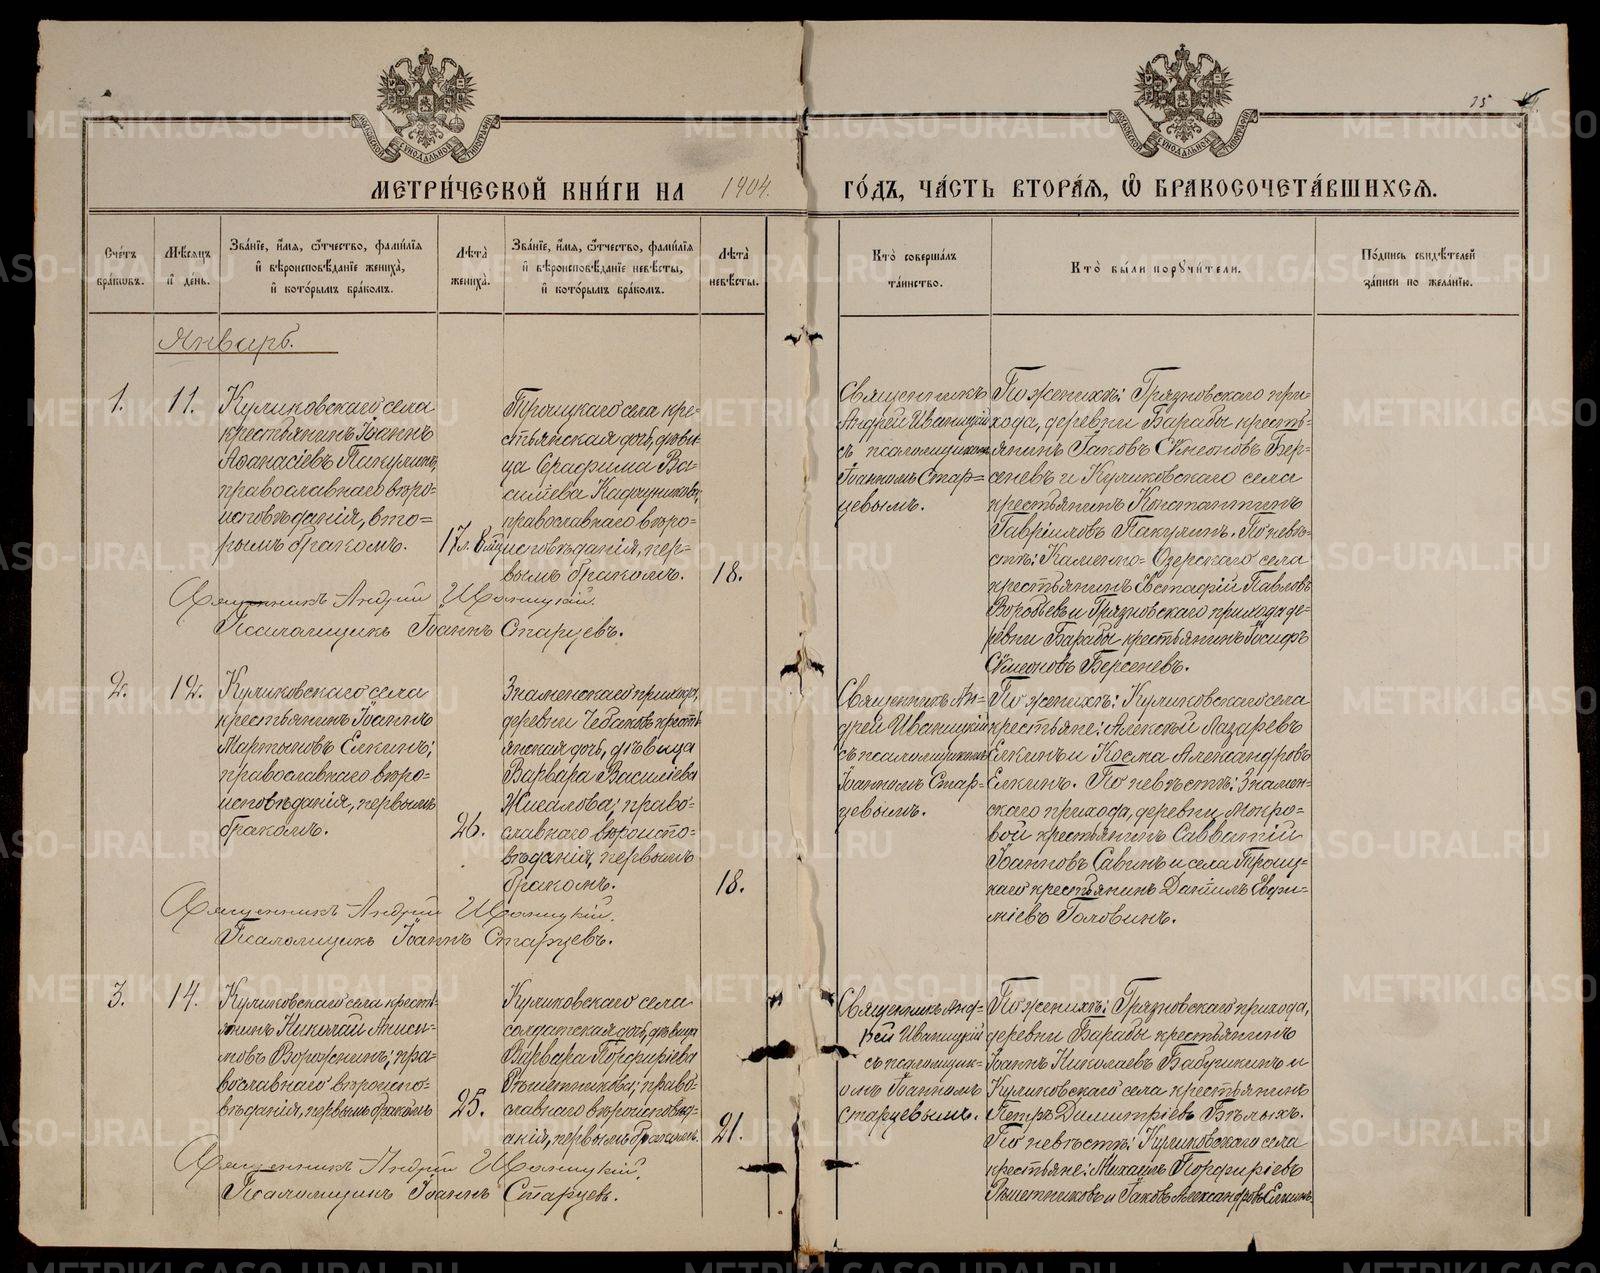 75
МОСКОВСКОЙ СѴНОДАЛЬНОЙ ТИПОГРАФІИ
МОСКОВСКОЙ СѴНОДАЛЬНОЙ ТИПОГРАФІИ
МЕТРИ́ЧЕСКОЙ КНИ́ГИ НА 1904. ГО́ДЪ, ЧА́СТЬ ВТОРА́Ѧ, Ѽ БРАКОСОЧЕТА́ВШИХСѦ.
Сче́тъ
бра́кωвъ.
Мѣ́сѧцъ
и҆ де́нь.
Зва́нїе, и҆́мѧ, ѻ҆́тчество, фами́лїѧ
и҆ вѣроисповѣ́данїе жениха̀,
и҆ кото́рымъ бра́комъ.
Лѣта̀
жениха̀.
Зва́нїе, и҆́мѧ, ѻ҆́тчество, фами́лїѧ
и҆ вѣроисповѣ́данїе невѣ́сты,
и҆ кото́рымъ бра́комъ.
Лѣта̀
невѣ́сты.
Кто̀ соверша́лъ
та́инство.
Кто̀ бы́ли порꙋчи́тели.
По́дпись свидѣ́телей
за́писи по жела́нїю.
Январь.
1.
11.
Куликовскаго села
крестьянинъ Іоаннъ
Аѳанасіевъ Пакулинъ,
православнаго вѣро-
исповѣданія, вто=
рымъ бракомъ.
17 л. 8 мц
Троицкаго села кре-
стьянская дочь, дѣви-
ца Серафима Ва-
силіева Кадочникова,
православнаго вѣро-
исповѣданія, пер-
вымъ бракомъ.
18.
Священникъ
Андрей Иваницкій
съ псаломщикомъ
Іоанномъ Стар=
цевымъ.
По женихѣ: Грязновскаго при
хода, деревни Барабы кресть-
янинъ Іаковъ Сѵмеоновъ Бер-
сеневъ и Куликовскаго села
крестьянинъ Константинъ
Гавріиловъ Пакулинъ. По невѣ-
стѣ: Каменно-Озерскаго села
крестьянинъ Евстафій Павловъ
Воробьевъ и Грязновскаго прихода де-
ревни Барабы крестьянинъ Іосифъ
Сѵмеоновъ Берсеневъ.
Священникъ Андрей Иваницкій.
Псаломщикъ Іоаннъ Старцевъ.
2.
12.
Куликовскаго села
крестьянинъ Іоаннъ
Мартыновъ Елкинъ;
православнаго вѣро-
исповѣданія, первымъ
бракомъ.
26.
Знаменскаго прихода,
деревни Чебаковъ кресть
янская дочь, дѣвица
Варвара Василіева
Жигалова; право-
славнаго вѣроиспо-
вѣданія, первымъ
бракомъ.
18.
Священникъ Ан-
дрей Иваницкій
съ псаломщикомъ
Іоанномъ Стар-
цевымъ.
По женихѣ: Куликовскаго села
крестьяне: Алексѣй Лазаревъ
Елкинъ и Косма Александровъ
Елкинъ. По невѣстѣ: Знамен-
скаго прихода, деревни Мокро-
вой крестьянинъ Савватій
Іоанновъ Савинъ и села Троиц-
каго крестьянинъ Даніилъ Евѳи-
міевъ Головинъ.
Священникъ Андрей Иваницкій.
Псаломщикъ Іоаннъ Старцевъ.
3.
14.
Куликовскаго села кресть-
янинъ Николай Аниси-
мовъ Ворожнинъ; пра-
вославнаго вѣроиспо-
вѣданія, первымъ бракомъ
25.
Куликовскаго села
солдатская дочь, дѣвица
Варвара Порфиріева
Рѣшетникова; право-
славнаго вѣроисповѣд-
анія, первымъ бракомъ.
21.
Священникъ Анд-
рей Иваницкій
съ псаломщик-
омъ Іоанномъ
Старцевымъ.
По женихѣ: Грязновскаго прихода,
деревни Барабы крестьянинъ
Іоаннъ Николаевъ Бабушкинъ и
Куликовскаго села крестьянинъ
Петръ Димитріевъ Бѣлыхъ.
По невѣстѣ: Куликовскаго села
крестьяне: Михаилъ Порфиріевъ
Рѣшетниковъ и Іаковъ Александровъ Елкинъ.
Священникъ Андрей Иваницкій.
Псаломщикъ Іоаннъ Старцевъ.
METRIKI.GASO-URAL.RU